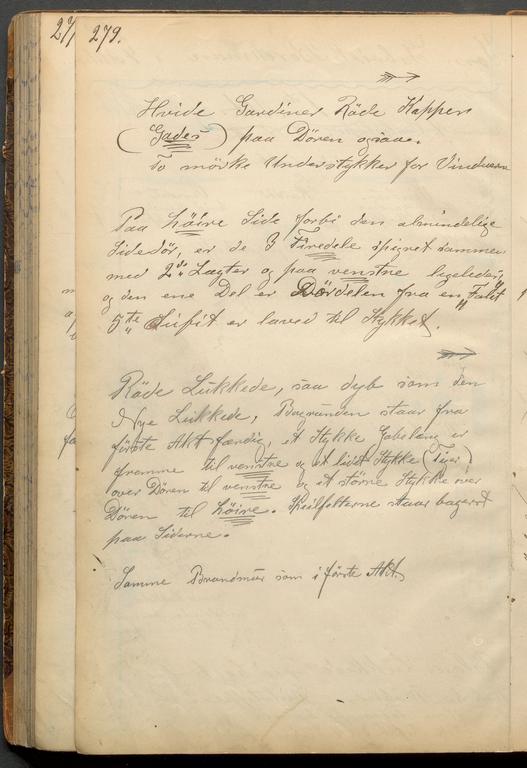 279.
Hvide Gardiner Röde Kapper
(Gades) paa Dören ogsaa.
To mörke Understykker for Vinduerne
Paa höire Side forbi den almindelige
Sidedör, er de 3 Firedele spigret sammen
med 2de Lægter og paa venstre ligeledes,
og den ene Del er Dördelen fra en "Falit"
5te Sufit er laved til Stykket.
Röde Lukkede, saa dyb som den
Nye Lukkede, Bagrunden staar fra
förste Akt færdig, et Stykke Gobelang er
fremme til venstre og et lidet Stykke
over Dören til venstre og et större Stykke over
Dören til höire. Speilfelterne staar bagerst
paa Siderne.
Samme Brandmur som i förste Akt.